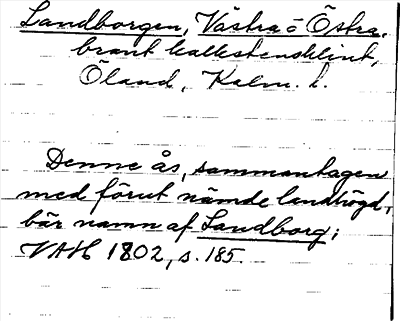 Landborgen, Västra o Östra.
brant kalkstensklint,
Öland, Kalm. l.
Denne ås, sammantagen
med förut nämde landthögd,
bär namn af Landborg;
VAH 1802, s. 185.